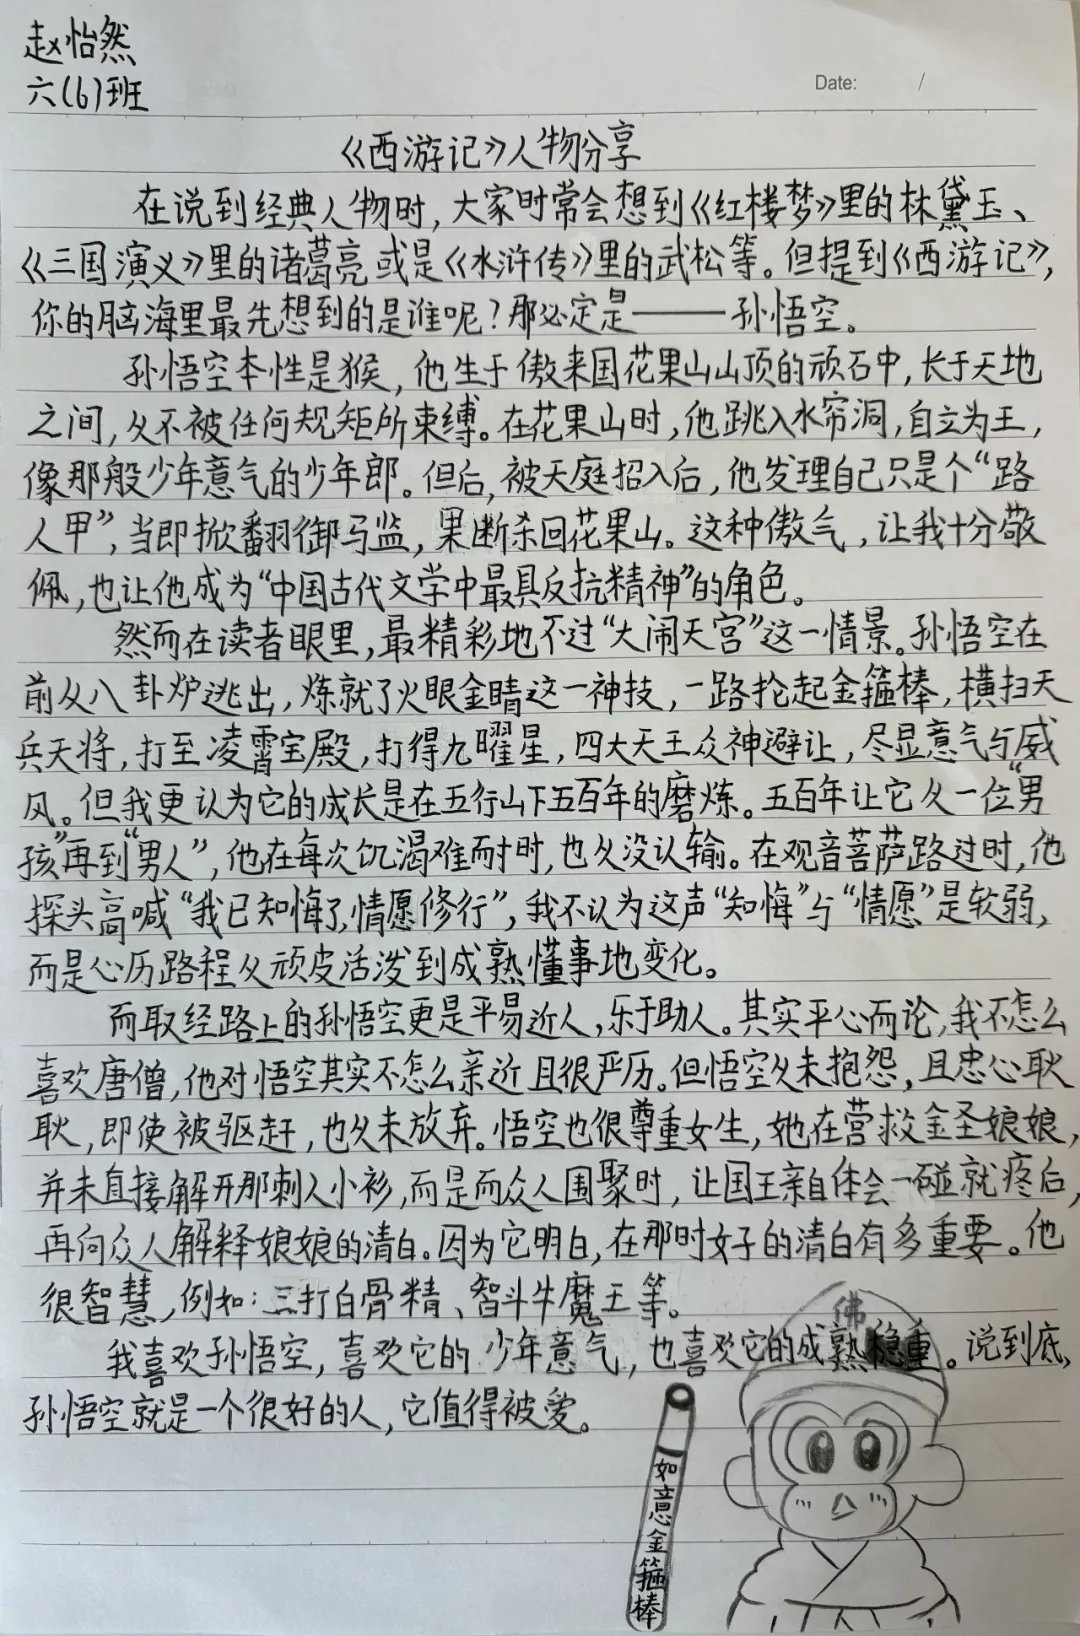 赵怡然
六(6)班
Date: /
《西游记》人物分享
在说到经典人物时，大家时常会想到《红楼梦》里的林黛玉、
《三国演义》里的诸葛亮或是《水浒传》里的武松等。但提到《西游记》，
你的脑海里最先想到的是谁呢？那必定是——孙悟空。
孙悟空本性是猴，他生于傲来国花果山山顶的顽石中，长于天地
之间，从不被任何规矩所束缚。在花果山时，他跳入水帘洞，自立为王，
像那般少年意气的少年郎。但后，被天庭招入后，他发理自己只是个“路
人甲”，当即掀翻御马监，果断杀回花果山。这种傲气，让我十分敬
佩，也让他成为“中国古代文学中最具反抗精神”的角色。
然而在读者眼里，最精彩地不过“大闹天宫”这一情景。孙悟空在
前从八卦炉逃出，炼就了火眼金睛这一神技，一路抡起金箍棒，横扫天
兵天将，打至凌霄宝殿，打得九曜星，四大天王众神避让，尽显意气与威
风。但我更认为它的成长是在五行山下五百年的磨炼。五百年让它从一位“男
孩”再到“男人”，他在每次饥渴难耐时，也从没认输。在观音菩萨路过时，他
探头高喊“我已知悔了，情愿修行”，我不认为这声“知悔”与“情愿”是软弱，
而是心历路程从顽皮活泼到成熟懂事地变化。
而取经路上的孙悟空更是平易近人，乐于助人。其实平心而论，我不怎么
喜欢唐僧，他对悟空其实不怎么亲近且很严历。但悟空从未抱怨，且忠心耿
耿，即使被驱赶，也从未放弃。悟空也很尊重女生，她在营救金圣娘娘，
并未直接解开那刺人小衫，而是而众人围聚时，让国王亲自体会一碰就疼后，
再向众人解释娘娘的清白。因为它明白，在那时女子的清白有多重要。他
很智慧，例如：三打白骨精、智斗牛魔王等。
我喜欢孙悟空，喜欢它的少年意气，也喜欢它的成熟稳重。说到底，
孙悟空就是一个很好的人，它值得被爱。
佛
如意金箍棒